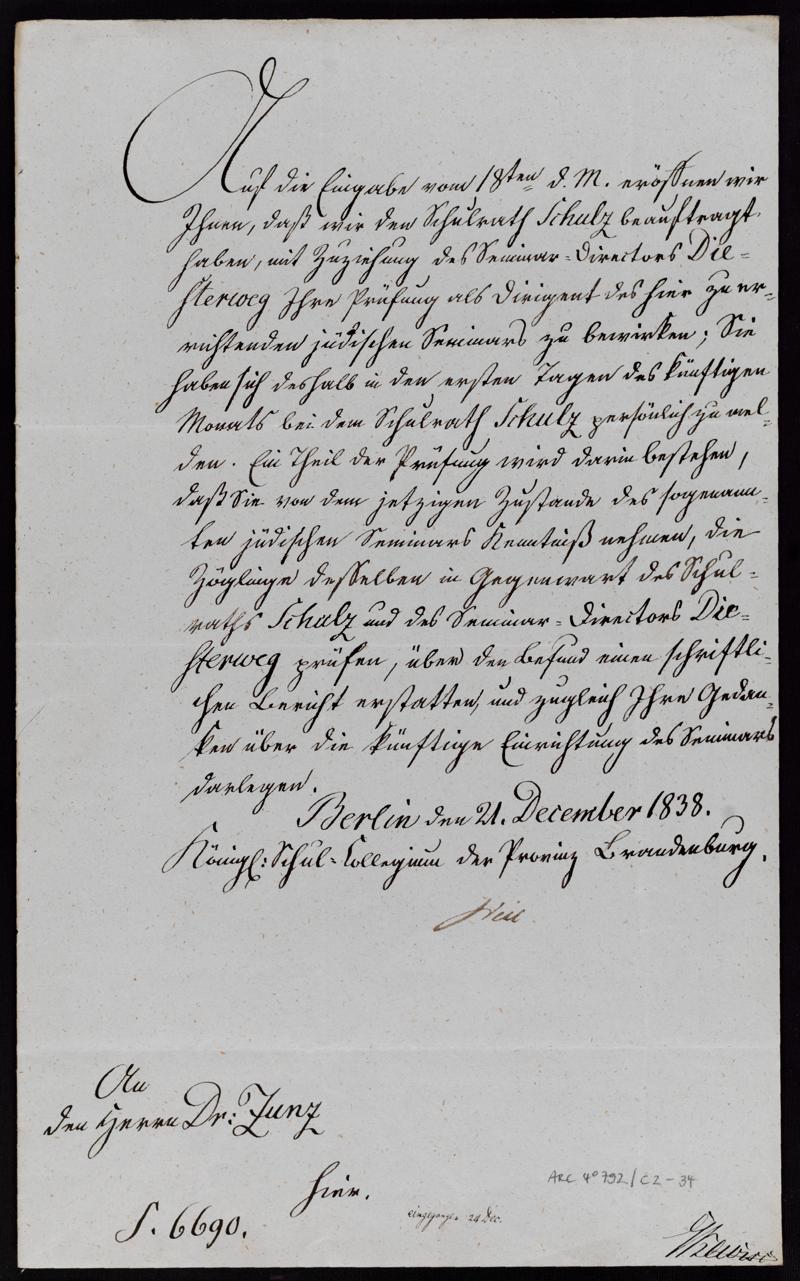 Auf die Eingabe vom 18ten d. M. eröffnen wir
Ihnen, daß wir den Schulrath Schulz beauftragt
haben, mit Zuziehung des Seminar-Directors Die-
sterweg Ihre Prüfung als Dirigent des hier zu er-
richtenden jüdischen Seminars zu bewirken; Sie
haben sich deshalb in den ersten Tagen des künftigen
Monats bei dem Schulrath Schulz persönlich zu mel-
den. Ein Theil der Prüfung wird darin bestehen,
daß Sie von dem jetzigen Zustande des sogenann-
ten jüdischen Seminars Kenntniß nehmen, die
Zöglinge desselben in Gegenwart des Schul-
raths Schulz und des Seminar-Directors Die-
sterweg prüfen, über den Befund einen schriftli-
chen Bericht erstatten, und zugleich Ihre Gedan-
ken über die künftige Einrichtung des Seminars
darlegen.
Berlin den 21. December 1838.
Königl: Schul-Collegium der Provinz Brandenburg.
An
den Herrn Dr: Zunz
hier.
S. 6690.
eingegangen 24 Dec.
ARC 4° 792/C2-34